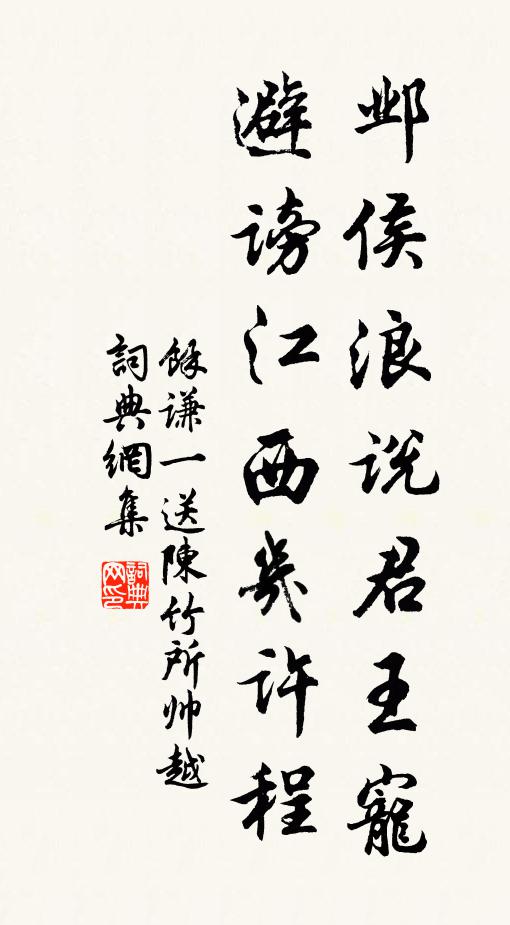 邺侯浪说君王寵
避谤江西幾许程
餘谦一送陳竹所帅越
詞典網集
詞典网印